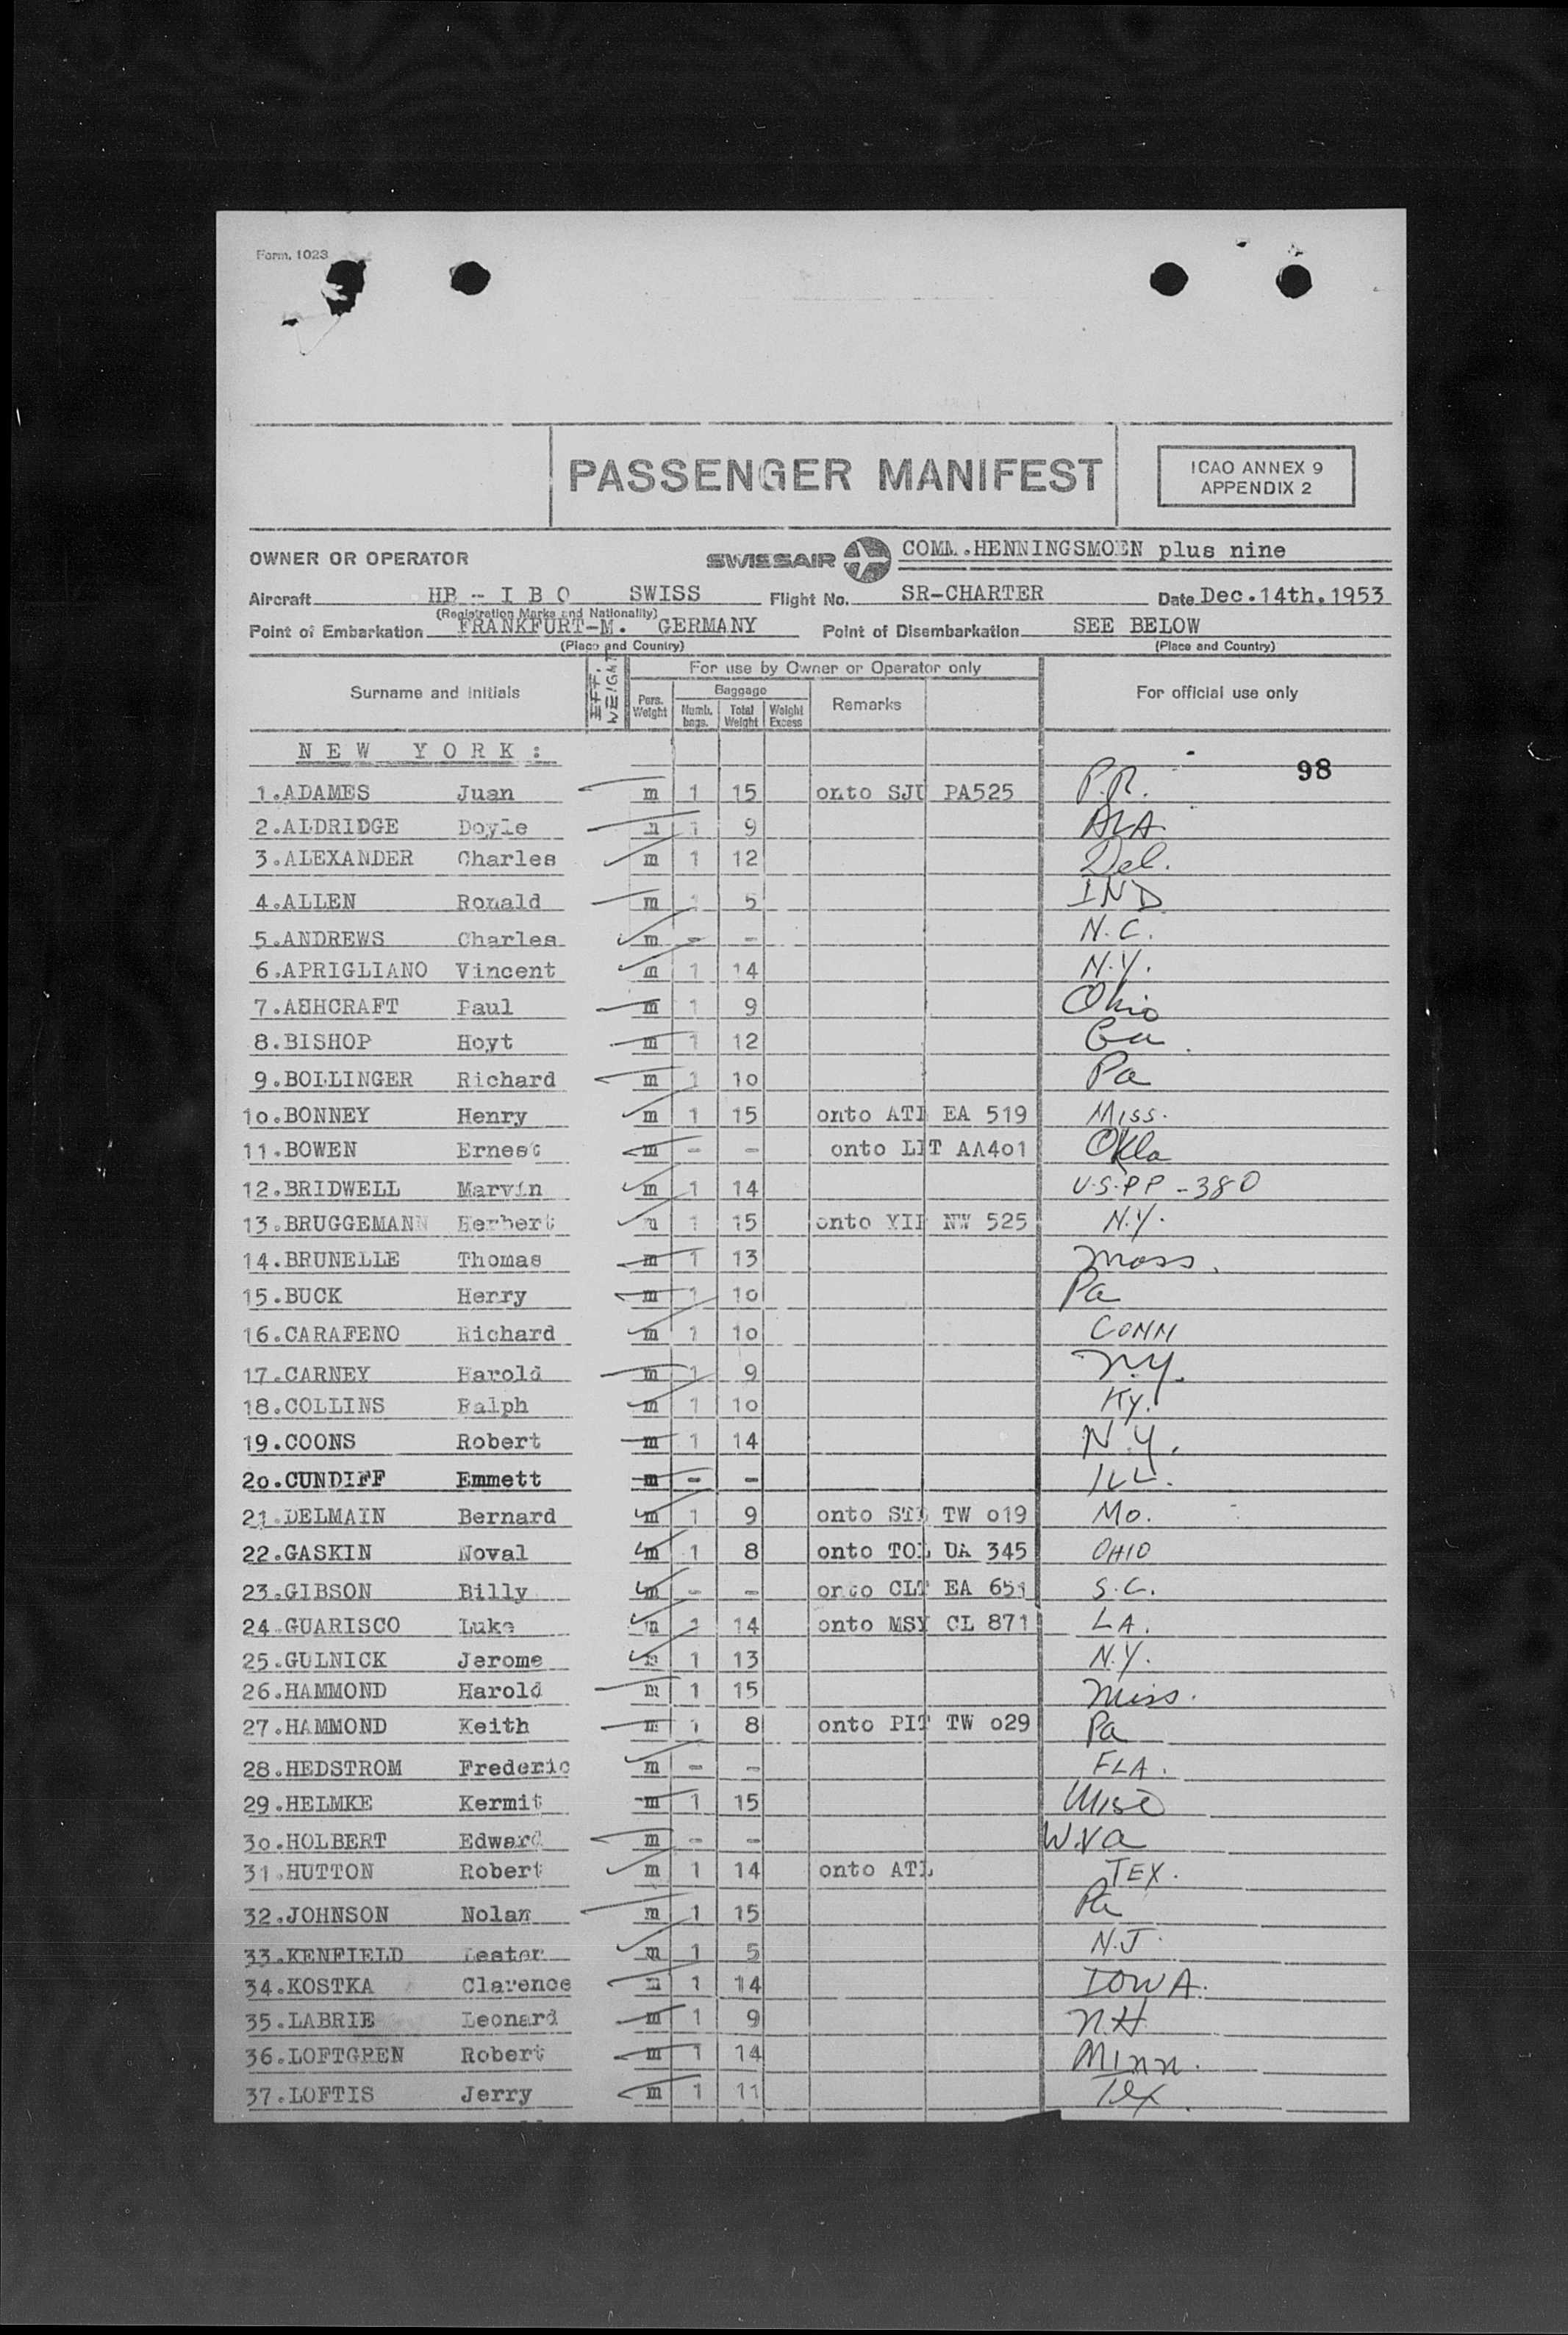 Form. 1023
PASSENGER MANIFEST
ICAO ANNEX 9
APPENDIX 2
OWNER OR OPERATOR SWISSAIR COMM.HENNINGSMOEN plus nine
Aircraft HB - I B O SWISS Flight No. SR-CHARTER Date Dec.14th.1953
(Registration Marks and Nationality)
Point of Embarkation FRANKFURT-M. GERMANY Point of Disembarkation SEE BELOW
(Place and Country) (Place and Country)
For use by Owner or Operator only
Surname and Initials EFF. WEIGHT Pass. Weight Baggage Numb. bags. Total Weight Weight Excess Remarks For official use only
N E W Y O R K :
98
1.ADAMES Juan m 1 15 onto SJU PA525 P.R.
2.ALDRIDGE Doyle m 1 9 ALA
3.ALEXANDER Charles m 1 12 Del.
4.ALLEN Ronald m 1 5 IND
5.ANDREWS Charles m - - N.C.
6.APRIGLIANO Vincent m 1 14 N.Y.
7.ASHCRAFT Paul m 1 9 Ohio
8.BISHOP Hoyt m 1 12 Ga.
9.BOLLINGER Richard m 1 10 Pa
10.BONNEY Henry m 1 15 onto ATL EA 519 Miss.
11.BOWEN Ernest m - - onto LIT AA401 Okla
12.BRIDWELL Marvin m 1 14 U.S.PP-380
13.BRUGGEMANN Herbert m 1 15 onto YIP NW 525 N.Y.
14.BRUNELLE Thomas m 1 13 Mass.
15.BUCK Herry m 1 10 Pa
16.CARAFENO Richard m 1 10 CONN
17.CARNEY Harold m 1 9 N.Y.
18.COLLINS Ralph m 1 10 Ky.
19.COONS Robert m 1 14 N.Y.
20.CUNDIFF Emmett m - - ILL.
21.DELMAIN Bernard m 1 9 onto STL TW 019 Mo.
22.GASKIN Noval m 1 8 onto TOL UA 345 OHIO
23.GIBSON Billy m - - onto CLT EA 651 S.C.
24.GUARISCO Luke m 1 14 onto MSY CL 871 LA.
25.GULNICK Jerome m 1 13 N.Y.
26.HAMMOND Harold m 1 15 Miss.
27.HAMMOND Keith m 1 8 onto PIT TW 029 Pa
28.HEDSTROM Frederic m - - FLA.
29.HELMKE Kermit m 1 15 Wisc
30.HOLBERT Edward m - - W.Va
31.HUTTON Robert m 1 14 onto ATL TEX.
32.JOHNSON Nolan m 1 15 Pa
33.KENFIELD Lester m 1 5 N.J.
34.KOSTKA Clarence m 1 14 IOWA.
35.LABRIE Leonard m 1 9 N.H
36.LOFTGREN Robert m 1 14 Minn.
37.LOFTIS Jerry m 1 11 Tex.